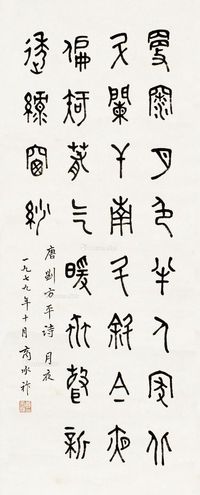 更深月色半人家北
斗闌干南斗斜今夜
偏知春气暖虫聲新
透綠窗紗
唐劉方平诗 月夜
一九七九年十月商承祚